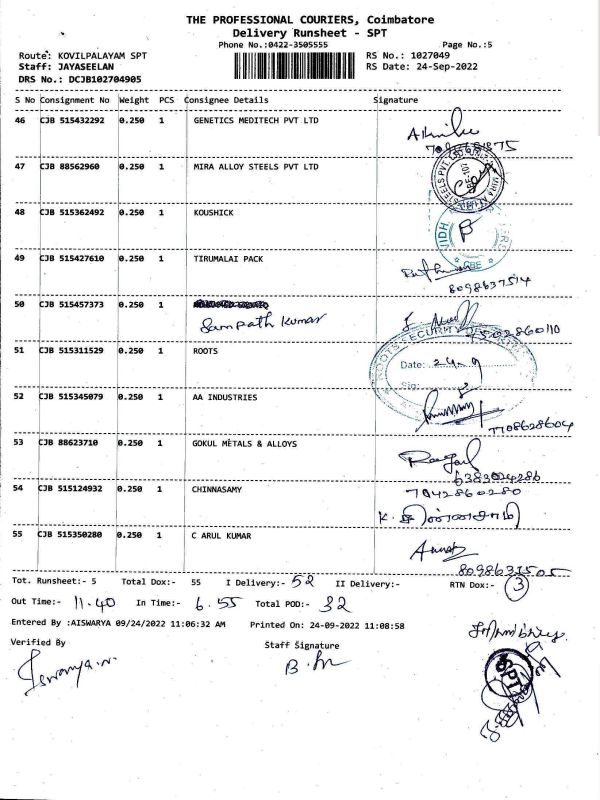 THE PROFESSIONAL COURIERS, Coimbatore
Delivery Runsheet - SPT
Phone No.:0422-3505555 Page No.:5
Route: KOVILPALAYAM SPT RS No.: 1027049
Staff: JAYASEELAN RS Date: 24-Sep-2022
DRS No.: DCJB102704905
S No Consignment No Weight PCS Consignee Details Signature
46 CJB 515432292 0.250 1 GENETICS MEDITECH PVT LTD
47 CJB 88562960 0.250 1 MIRA ALLOY STEELS PVT LTD
48 CJB 515362492 0.250 1 KOUSHICK
49 CJB 515427610 0.250 1 TIRUMALAI PACK
8098637514
50 CJB 515457373 0.250 1
Sampath Kumar
9502860110
51 CJB 515311529 0.250 1 ROOTS
ROOTS SECURITY
Date: 24-9
52 CJB 515345079 0.250 1 AA INDUSTRIES
7708628604
53 CJB 88623710 0.250 1 GOKUL METALS & ALLOYS
6383024286
54 CJB 515124932 0.250 1 CHINNASAMY
7042860280
55 CJB 515350280 0.250 1 C ARUL KUMAR
8098631505
Tot. Runsheet:- 5 Total Dox:- 55 I Delivery:- 52 II Delivery:- RTN Dox:- 3
Out Time:- 11.40 In Time:- 6.55 Total POD:- 32
Entered By :AISWARYA 09/24/2022 11:06:32 AM Printed On: 24-09-2022 11:08:58
Verified By Staff Signature
SPT